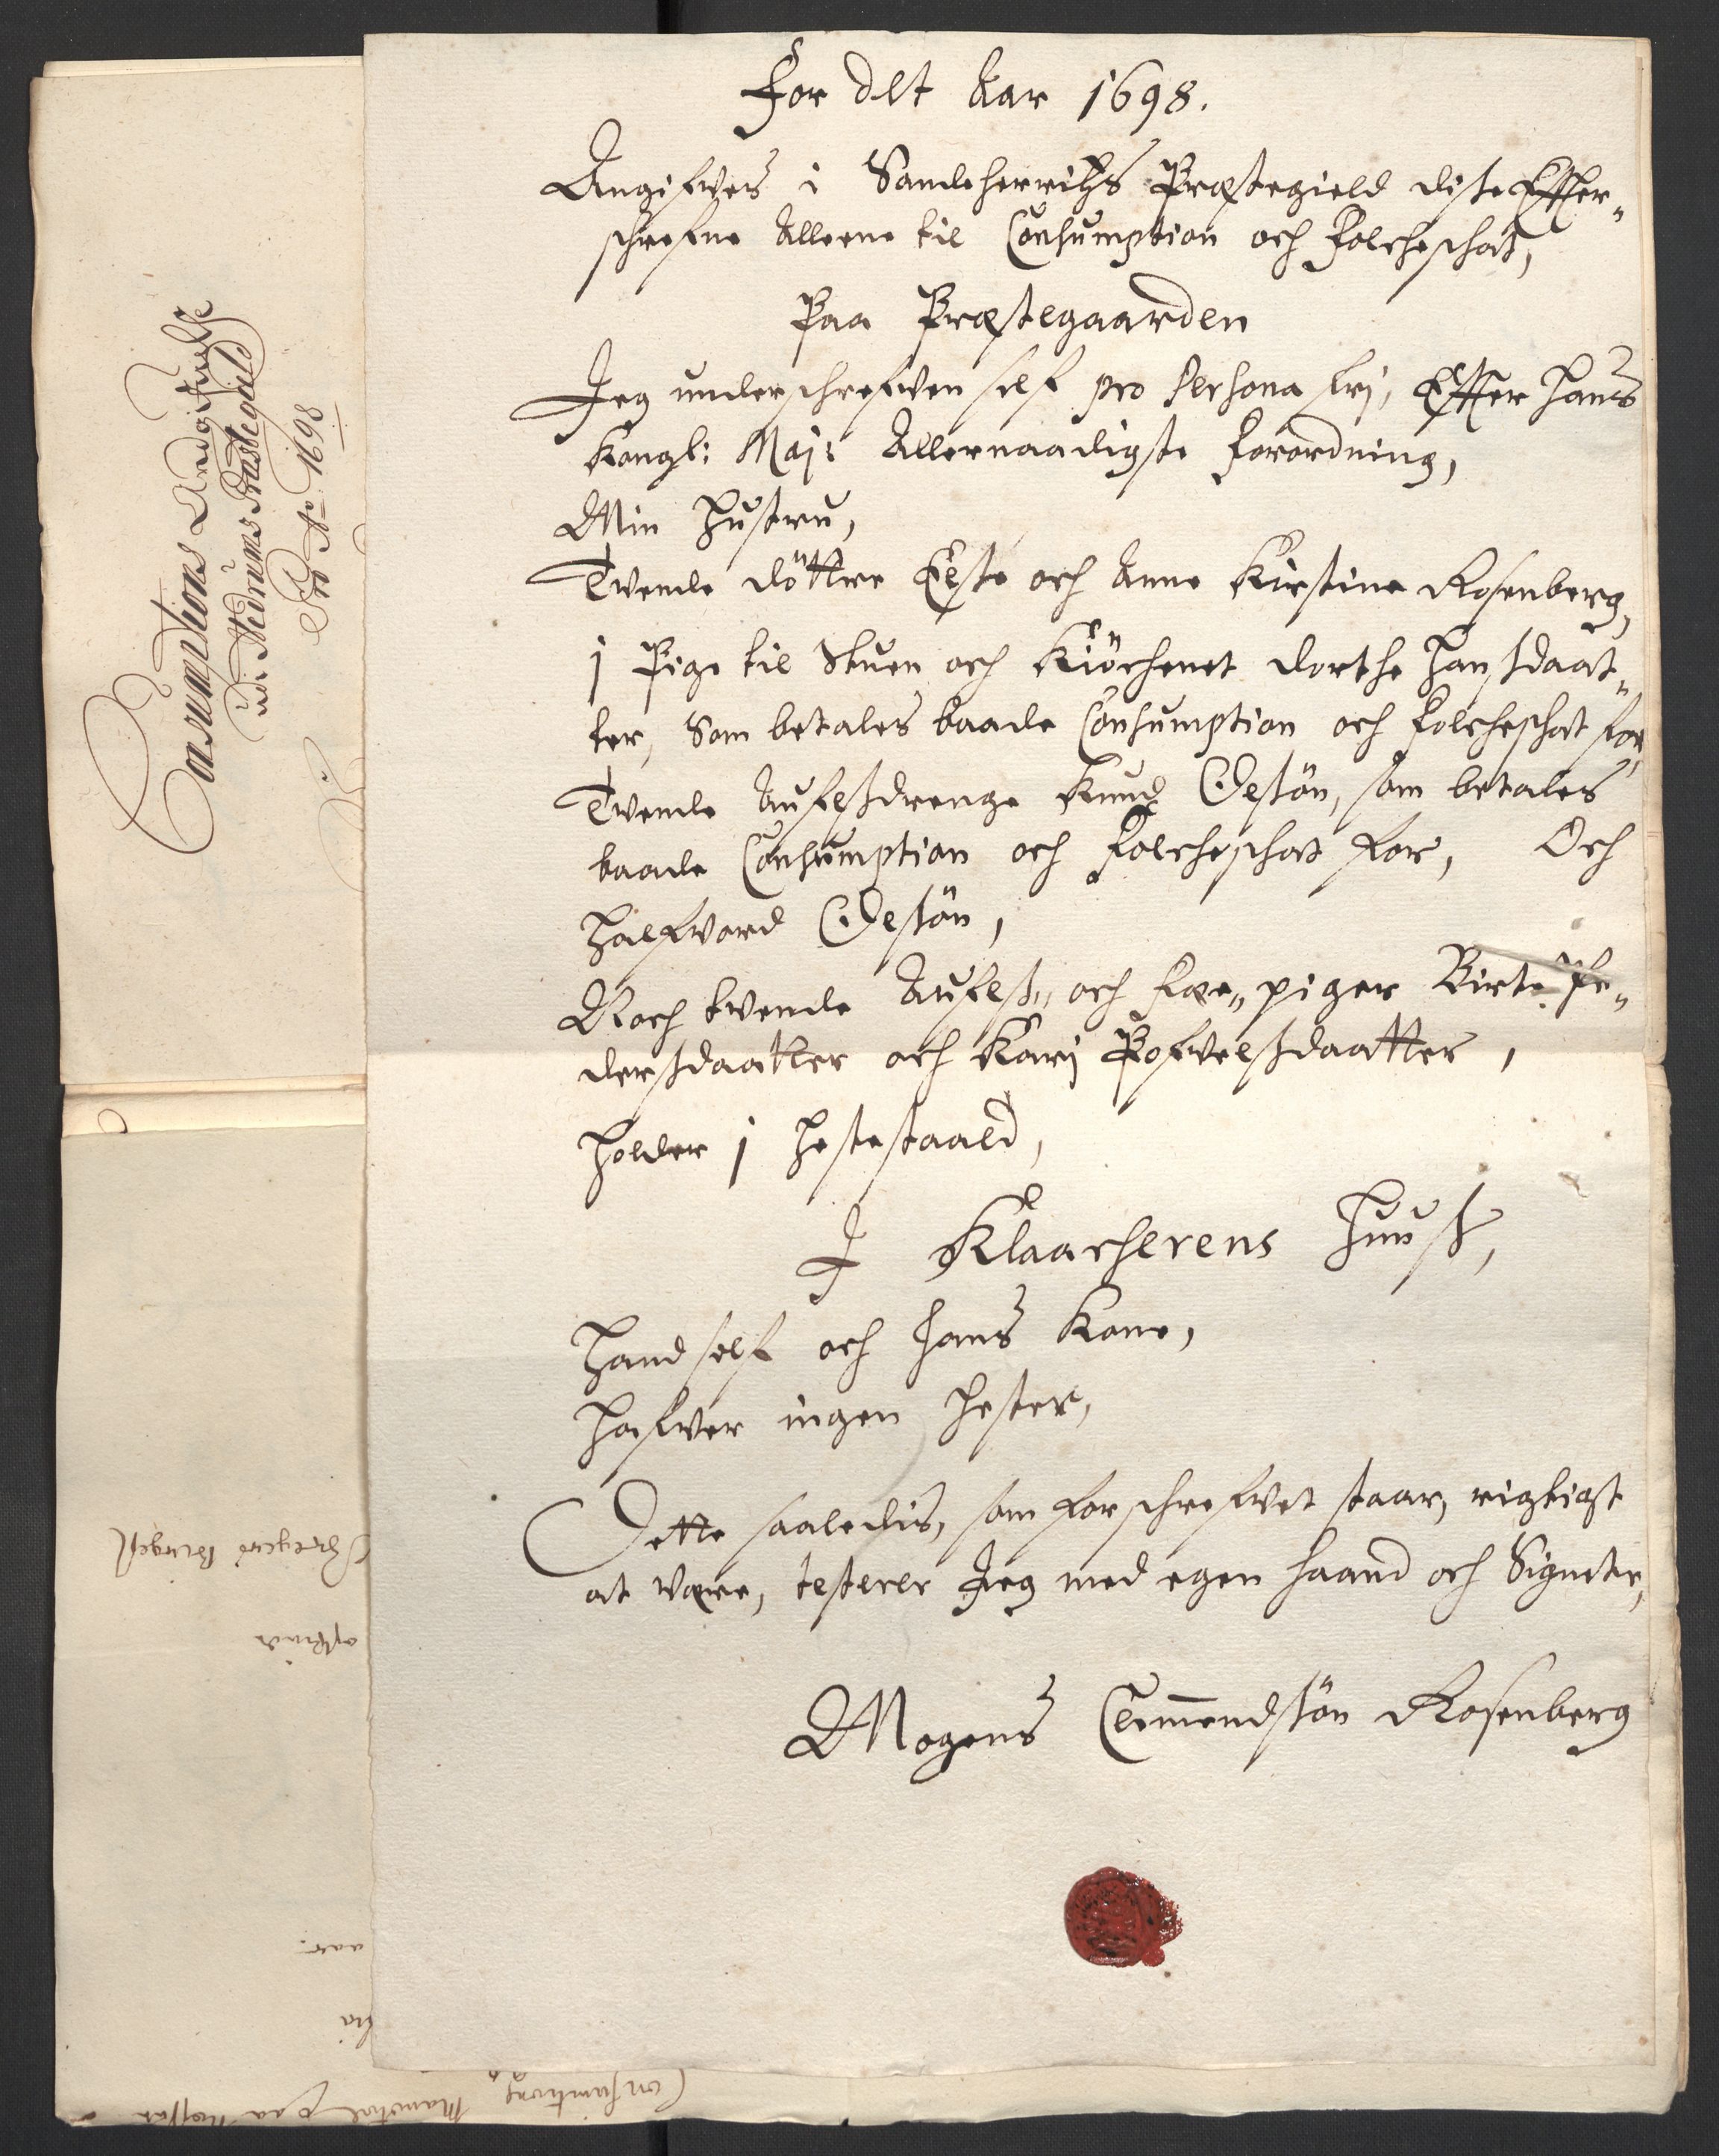 For det Aar 1698.
Angifves i Sandeherritz Præstegield diste Effter„
schrefne Alleene til Consumption och Folcheschat,
Paa Præstegaarden
Jeg underschrefven self pro Persona frj, Effter Hans
Kongl: Maj: Allernaadigste Forordning,
Min Hustru,
Tvende döttre Else och Anne Kirstine Rosenberg,
1 Pige til Stuen och Kiöchenet Dorthe Hansdaat„
ter, Som betales baade Consumption och Folcheschat for,
Tvende Aufelsdrenge Knud Olesön, som betales
baade Consumption och Folcheschat for, Och
Halfvord Olesön,
Noch tvende Aufels„ och Fæe„piger Birte Pe„
dersdaatter och Karj Pofvelsdaatter,
Holder 1 Hestestaald,
I Klaacherens Huus,
Hand self och hans Kone,
Hafver ingen Hester,
Dette saaledis, som forschrefvet staar, rigtigst
at være, testerer Jeg med egen haand och Signete,
Mogens Clemendsön Rosenberg
Consumptions Angifvelsse
udi Nedrums Præstegield
Pro Ao 1698
aar.
Mandtal paa